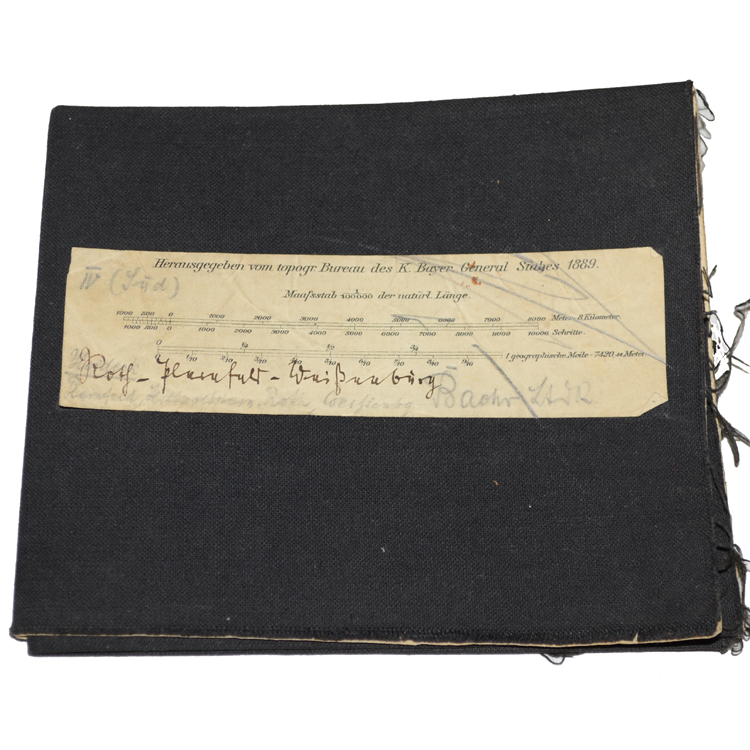 Herausgegeben vom topogr. Bureau des K. Bayer. General Stabes 1889.
IV (Süd)
Maafsstab 1/100000 der natürl. Länge.
1000 500 0 1000 2000 3000 4000 5000 6000 7000 8000 Meter = 8 Kilometer.
1000 500 0 1000 2000 3000 4000 5000 6000 7000 8000 9000 10000 Schritte.
0 1/4 1/2 3/4 1 geographische Meile = 7420,44 Meter.
1/10 2/10 3/10 4/10 5/10 6/10 7/10 8/10 9/10
Roth - Pleinfeld - Weißenburg
Roth, Weissenbg.